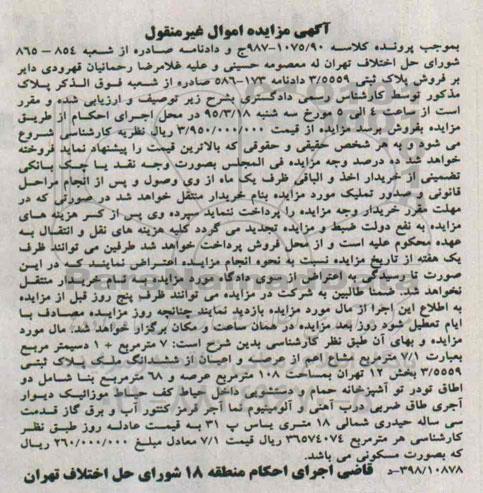 آگهی مزایده اموال غیرمنقول
بموجب پرونده کلاسه ۱۰۷۵/۹۰-۹۸۷ج و دادنامه صادره از شعبه ۸۵۴ - ۸۶۵
شورای حل اختلاف تهران له معصومه حسینی و علیه غلامرضا رحمانیان قهرودی دایر
بر فروش پلاک ثبتی ۳/۵۵۵۹ دادنامه ۱۷۳-۵۸۶ صادره از شعبه فوق الذکر پلاک
مذکور توسط کارشناس رسمی دادگستری بشرح زیر توصیف و ارزیابی شده و مقرر
است از ساعت ۴ الی ۶ مورخ سه شنبه ۹۵/۳/۱۸ در محل اجرای احکام از طریق
مزایده بفروش برسد مزایده از قیمت ۳/۹۵۰/۰۰۰/۰۰۰ ریال نظریه کارشناسی شروع
می شود و به هر شخص حقیقی و حقوقی که بالاترین قیمت را پیشنهاد نماید فروخته
خواهد شد ده درصد وجه مزایده فی المجلس بصورت وجه نقد یا چک بانکی
تضمینی از خریدار اخذ و الباقی ظرف یک ماه از وی وصول و پس از انجام مراحل
قانونی و صدور تملیک مورد مزایده بنام خریدار منتقل خواهد شد در صورتی که در
مهلت مقرر خریدار وجه مزایده را پرداخت ننماید سپرده وی پس از کسر هزینه های
مزایده به نفع دولت ضبط و مزایده تجدید می گردد کلیه هزینه های نقل و انتقال به
عهده محکوم علیه است و از محل فروش پرداخت خواهد شد طرفین می توانند ظرف
یک هفته از تاریخ مزایده نسبت به نحوه انجام مزایده اعتراض نمایند که در این
صورت تا رسیدگی به اعتراض از سوی دادگاه مورد مزایده سند به خریدار منتقل
نخواهد شد. ضمنا طالبین به شرکت در مزایده می توانند ظرف پنج روز قبل از مزایده
به اطلاع این اجرا از مال مورد مزایده بازدید نمایند چنانچه روز مزایده مصادف با
ایام تعطیل شود روز بعد مزایده در همان ساعت و مکان برگزار خواهد شد. مال مورد
مزایده و بهای آن طبق نظر کارشناسی بدین شرح است: ۷ مترمربع + ۱ دسیمتر مربع
بعبارت ۷/۱ مترمربع مشاع اعم از عرصه و اعیان از ششدانگ ملک پلاک ثبتی
۳/۵۵۵۹ بخش ۱۲ تهران به مساحت ۱۰۸ مترمربع عرصه و ۶۸ مترمربع بنا شامل دو
اطاق تودر تو آشپزخانه حمام و دستشویی داخل حیاط کف سالن موزائیک دیوار
آجری طاق ضربی درب آهنی و آلومینیوم نما آجر قرمز کنتور آب و برق گاز قدمت
سی ساله حیدری شمالی ۱۸ متری یاس پ ۳۱ به قیمت عادله روز طبق نظر
کارشناسی هر مترمربع ۳۶۵۷۴۰۷۴ ریال قیمت ۷/۱ معادل مبلغ ۲۶۰/۰۰۰/۰۰۰ ریال
که بصورت مسکونی می باشد.
۳۹۸/۱۰۸۷۸-د قاضی اجرای احکام منطقه ۱۸ شورای حل اختلاف تهران
ParsNamadData